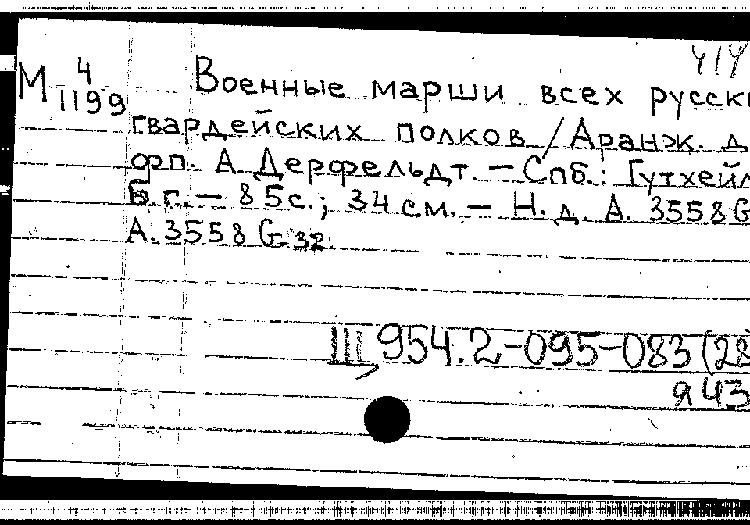 414
М 4
1199
Военные марши всех русски
гвардейских полков / Аранж. д
фп. А. Дерфельдт. — Спб.: Гутхейл
Б.г. — 85с.; 34см. — Н. д. А. 3558 G
А. 3558 G 32.
III 954.2-095-083 (28
я 43